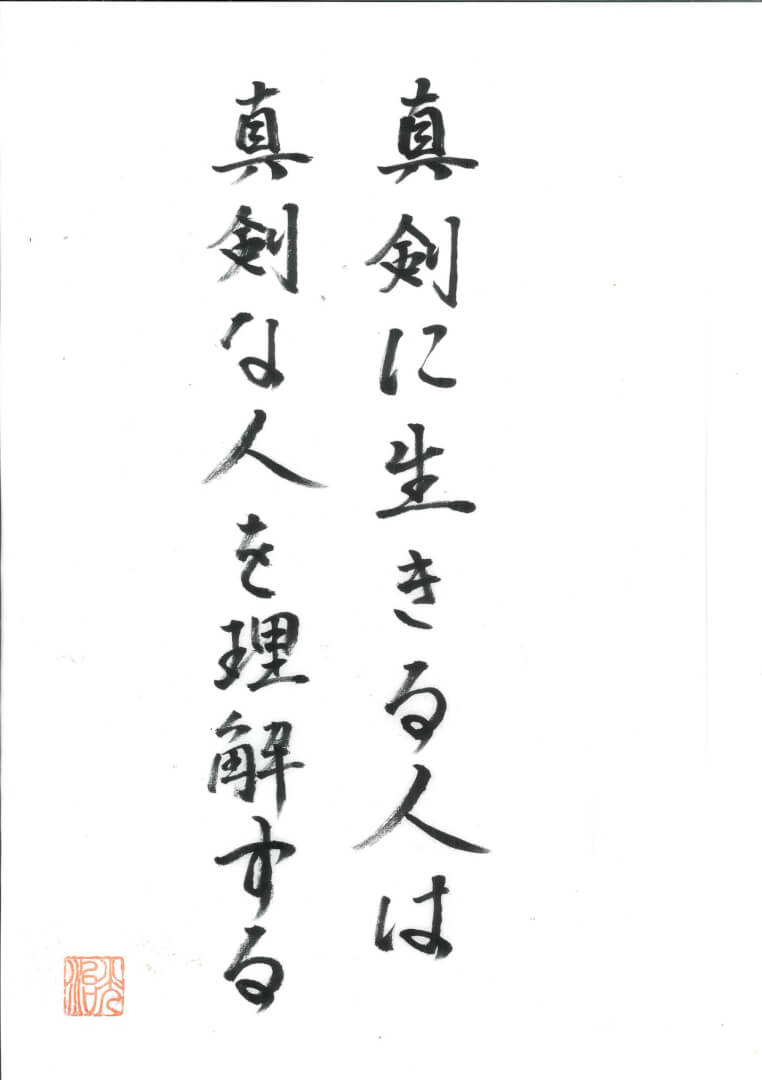 真剣に生きる人は
真剣な人を理解する